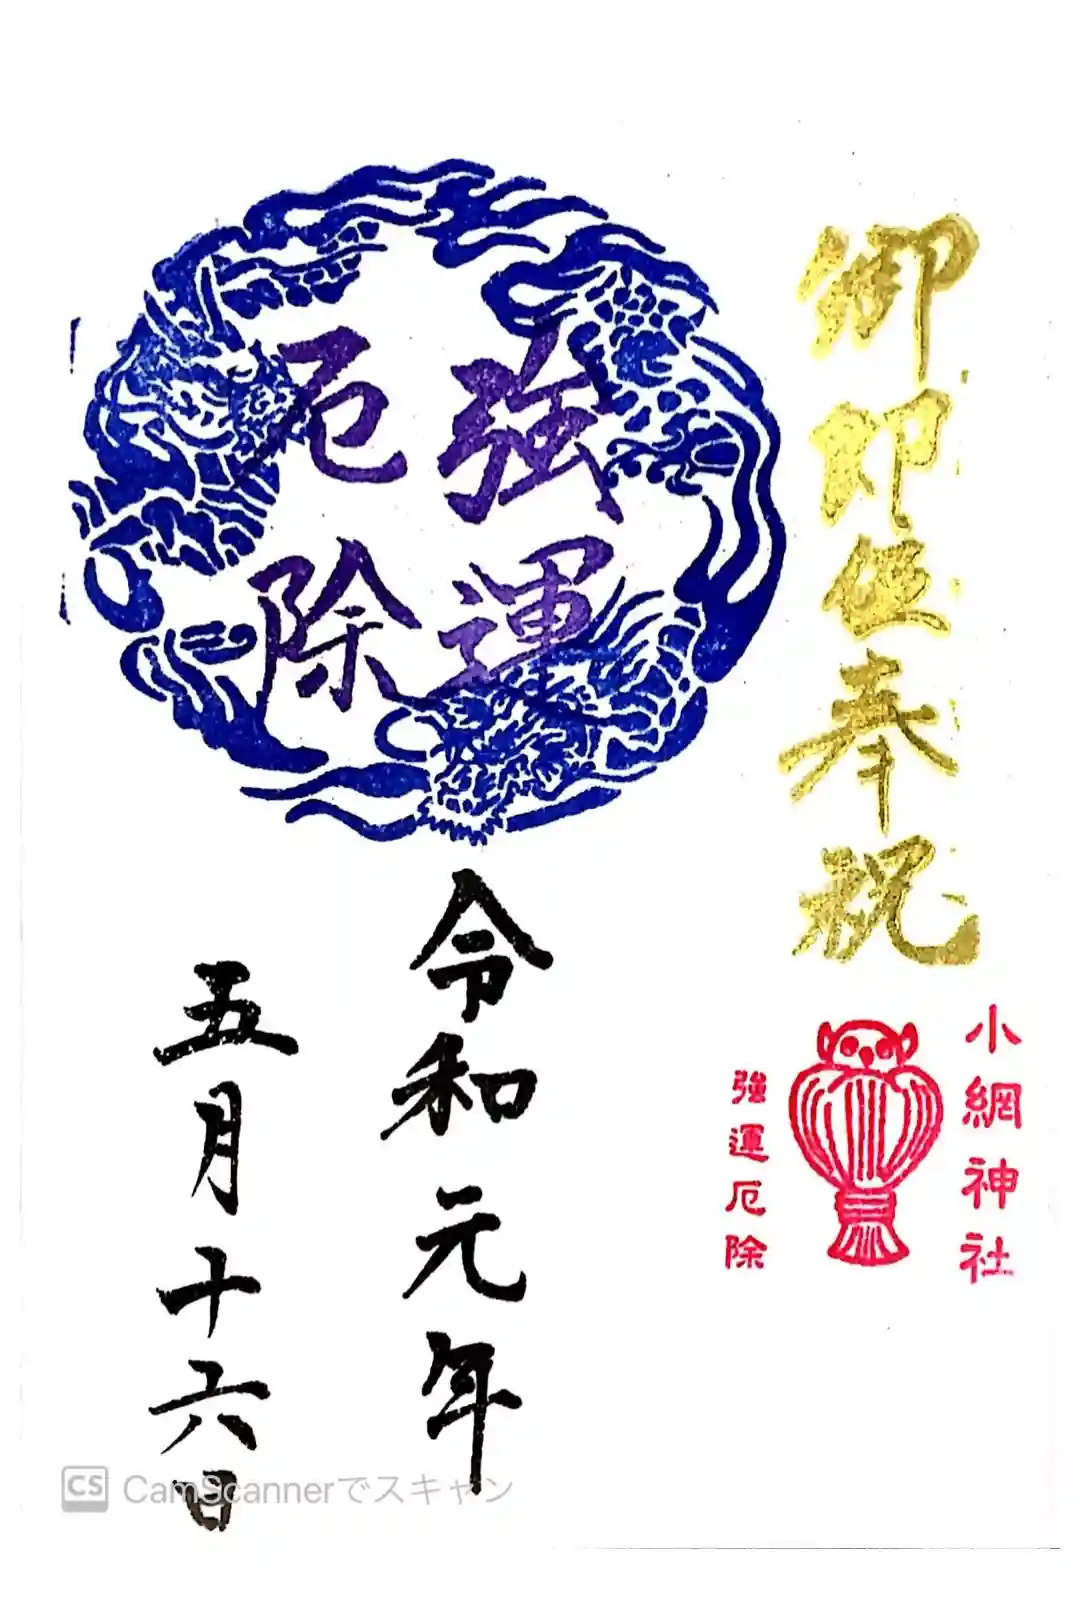 御即位奉祝
小網神社
強運厄除
強運
厄除
令和元年
五月十六日
CS CamScannerでスキャン